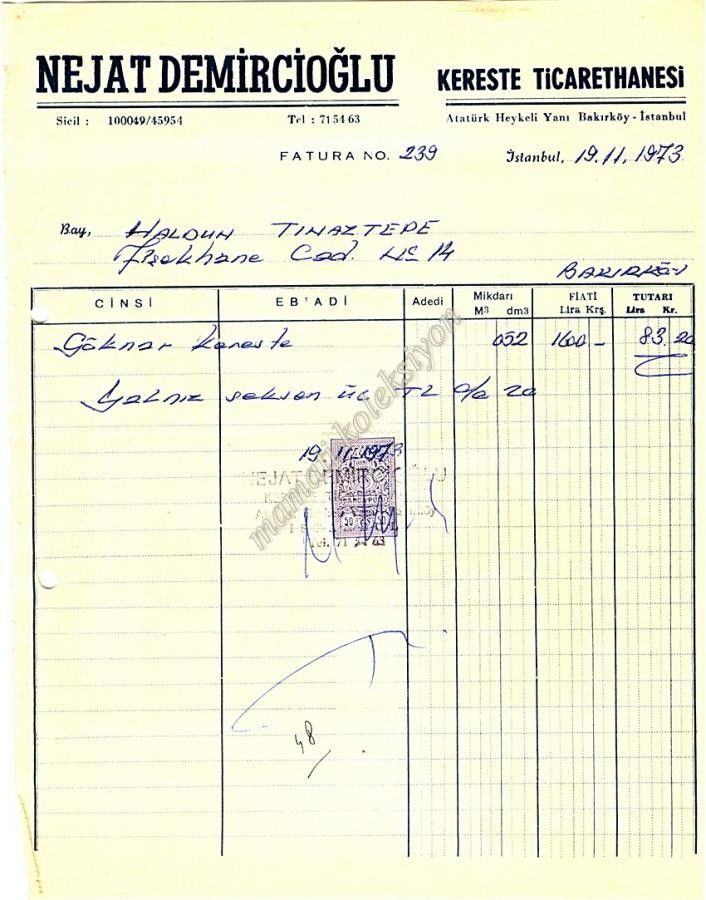 NEJAT DEMİRCİOĞLU
KERESTE TİCARETHANESİ
Sicil : 100049/45954
Tel : 71 54 63
Atatürk Heykeli Yanı Bakırköy - İstanbul
FATURA NO. 239
İstanbul, 19.11.1973
Bay, HALDUN TINAZTEPE
Fişekhane Cad. No 14
BAKIRKÖY
CİNSİ EB'ADİ Adedi Mikdarı M3 dm3 FİATİ Lira Krş. TUTARI Lira Kr.
Göknar Kereste 052 1600 - 83.20
Yalnız seksen üç TL 20
19 11 1973
NEJAT DEMİRCİOĞLU
Tel. 71 54 63
48
mamatikoleksiyon